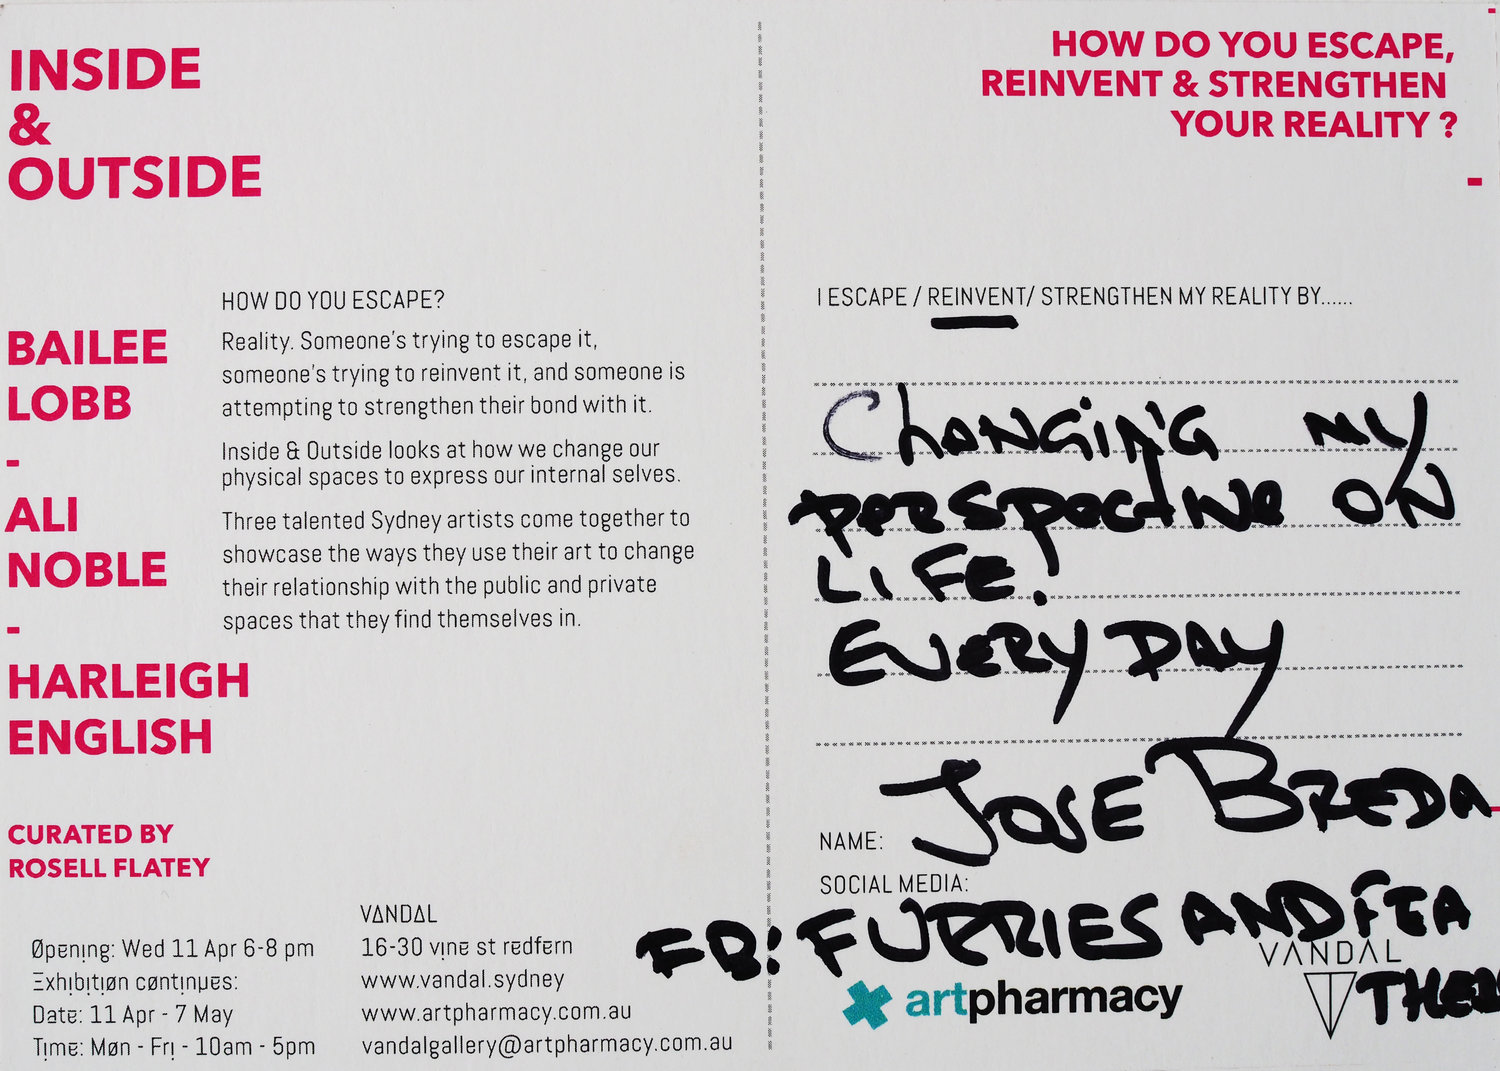 INSIDE
&
OUTSIDE
BAILEE
LOBB
-
ALI
NOBLE
-
HARLEIGH
ENGLISH
CURATED BY
ROSELL FLATEY
HOW DO YOU ESCAPE?
Reality. Someone's trying to escape it,
someone's trying to reinvent it, and someone is
attempting to strengthen their bond with it.
Inside & Outside looks at how we change our
physical spaces to express our internal selves.
Three talented Sydney artists come together to
showcase the ways they use their art to change
their relationship with the public and private
spaces that they find themselves in.
Øpening: Wed 11 Apr 6-8 pm
Exhibitiøn cøntinues:
Date: 11 Apr - 7 May
Time: Møn - Fri - 10am - 5pm
VANDAL
16-30 vine st redfern
www.vandal.sydney
www.artpharmacy.com.au
vandalgallery@artpharmacy.com.au
HOW DO YOU ESCAPE,
REINVENT & STRENGTHEN
YOUR REALITY ?
I ESCAPE / REINVENT/ STRENGTHEN MY REALITY BY......
CHANGING MY
PERSPECTIVE ON
LIFE!
EVERY DAY
NAME: JOSE BREDA
SOCIAL MEDIA:
FB: FURRIES AND FEA
THER
VANDAL
artpharmacy